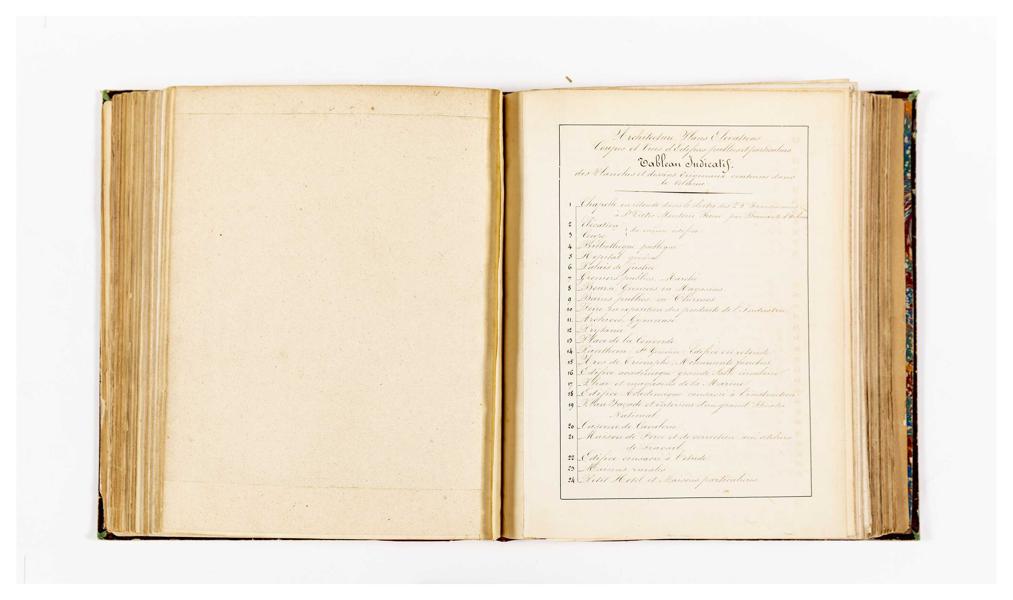 Architecture Plans Elevations
Coupes et Vues d'Edifices publics et particuliers
Tableau Indicatif.
des Planches et dessins Originaux contenus dans
le Volume
1 Chapelle en rotonde dans le cloitre des
à St Pierre Montorio Rome par Bramante d'Urbin
2 Elévation
3 Coupe } du même édifice
4 Bibliothèque publique
5 Hopital général
6 Palais de justice
7 Greniers publics Marché
8 Bourse Greniers ou Magasins
9 Bains publics ou Thermes
10 Foire ou exposition des produits de l'Industrie
11 Archives Gymnase
12 Prytanée
13 Place de la Concorde
14 Panthéon Ste Geneviève Edifice en rotonde
15 Arcs de Triomphe Monuments funèbres
16 Edifice académique grande Salle circulaire
17 Phar et magasins de la Marine
18 Edifice Académique consacré à l'instruction
19 Plan Façade et intérieur d'un grand Théatre
National
20 Caserne de Cavalerie
21 Maison de Force et de correction avec ateliers
de travail
22 Edifice consacré à l'étude
23 Maisons rurales
24 Petit Hotel et Maisons particulières